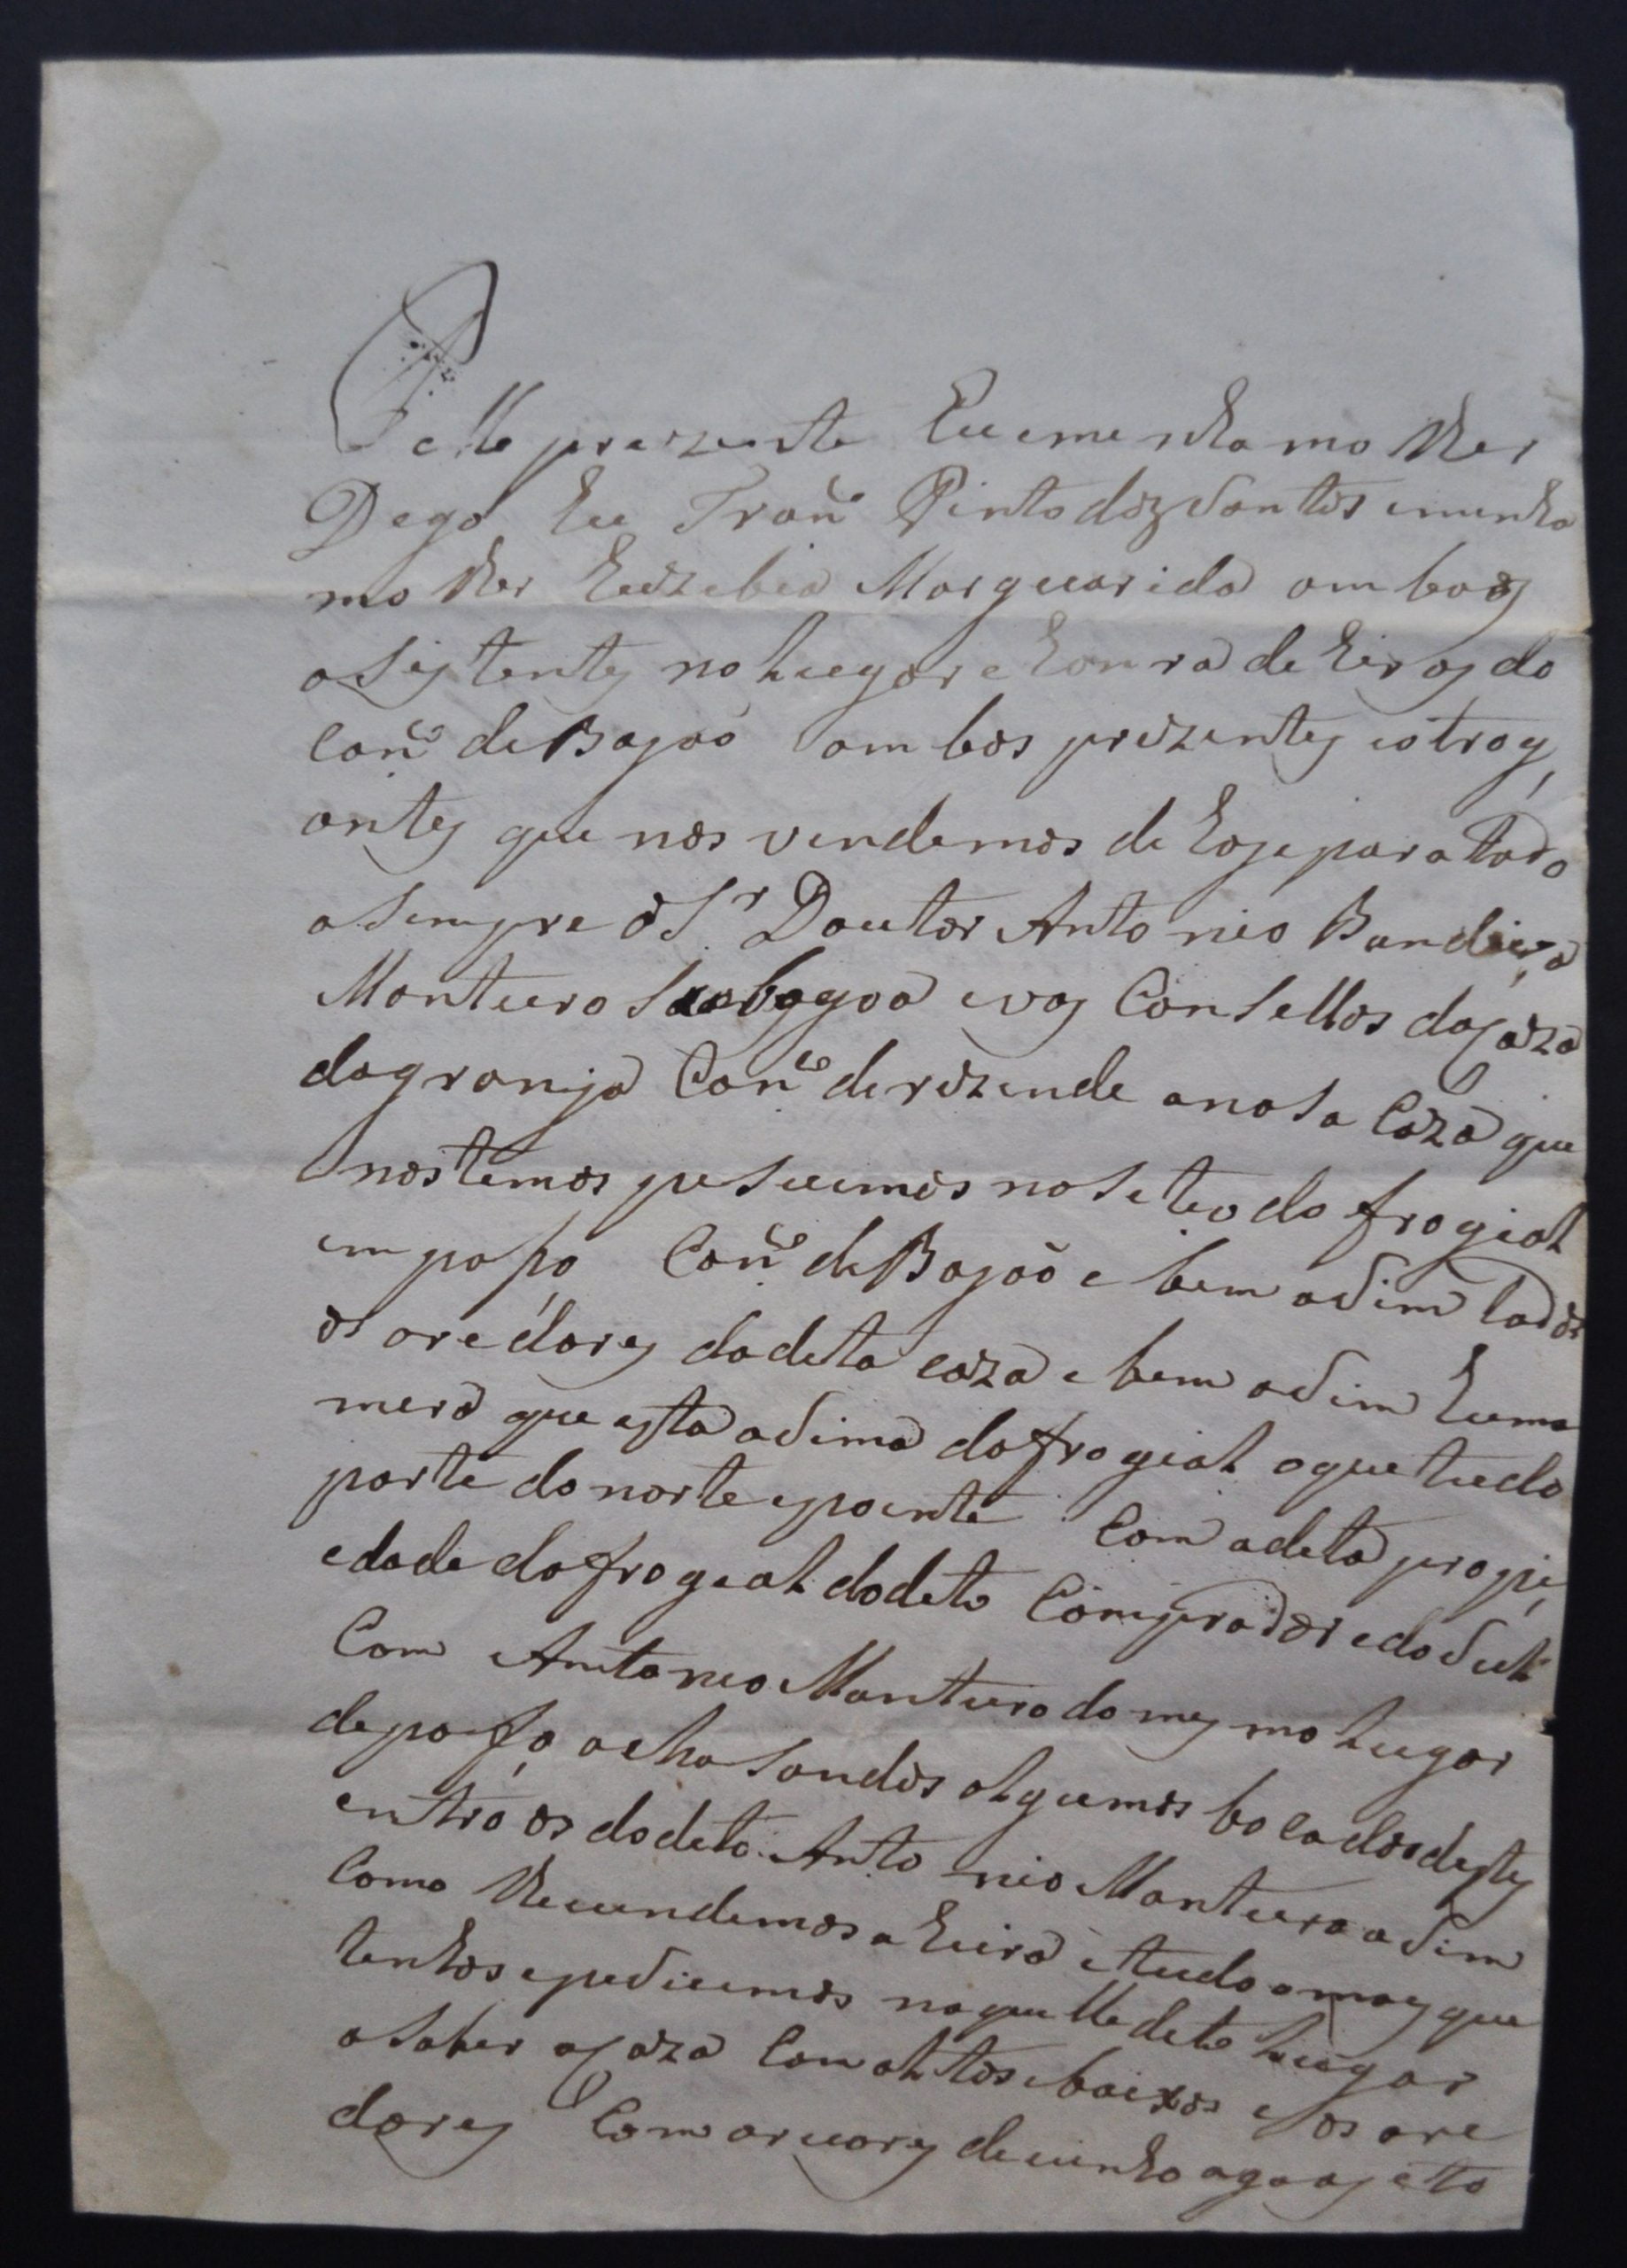 Pelle prezente Eu eminha molher
Dego Eu Franco Pinto doz Santos eminha
molher Euzebia Marguarida ambos
asistentes no Lugar e honra de Eiras do
Conco de Bajaõ ambos prezentes eotrog
antes que nos vendemos de hoje para todo
asempre o Sr Doutor Antonio Bandeira
Monteiro e vas Consellos da caza
dagranja Conco derezende anosa Caza que
nostemos pesuimos no setio do frogial
em Conco de Bajaõ e bem asim tados
os aredores dadeta caza e bem asim huma
mera que esta asima do frogial oque tudo
parte do norte epoente Com adeta propi
edade do frogeal dodeto Comprador e do Sul
Com Antoneo Monteiro do mesmo Lugar
de achasandos algumos bocados destes
entre os dodeto Antonio Monteiro asim
Como vendemos a Eira e tudo o mais que
tenhos epesuimos naquelle deto Lugar
asaber acaza Com altos ebaixos e os are
dores Com aruores deuinho agoas e to